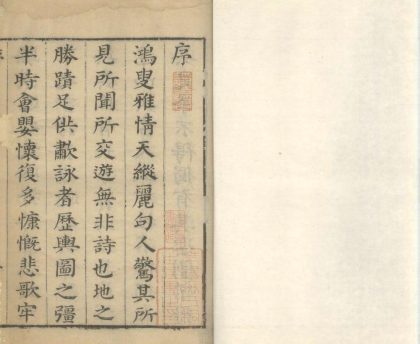 序
鴻叟雅情天縱麗句人驚其所
見所聞所交遊無非詩也地之
勝蹟足供歗詠者歷輿圖之彊
半時會嬰懷復多慷慨悲歌牢